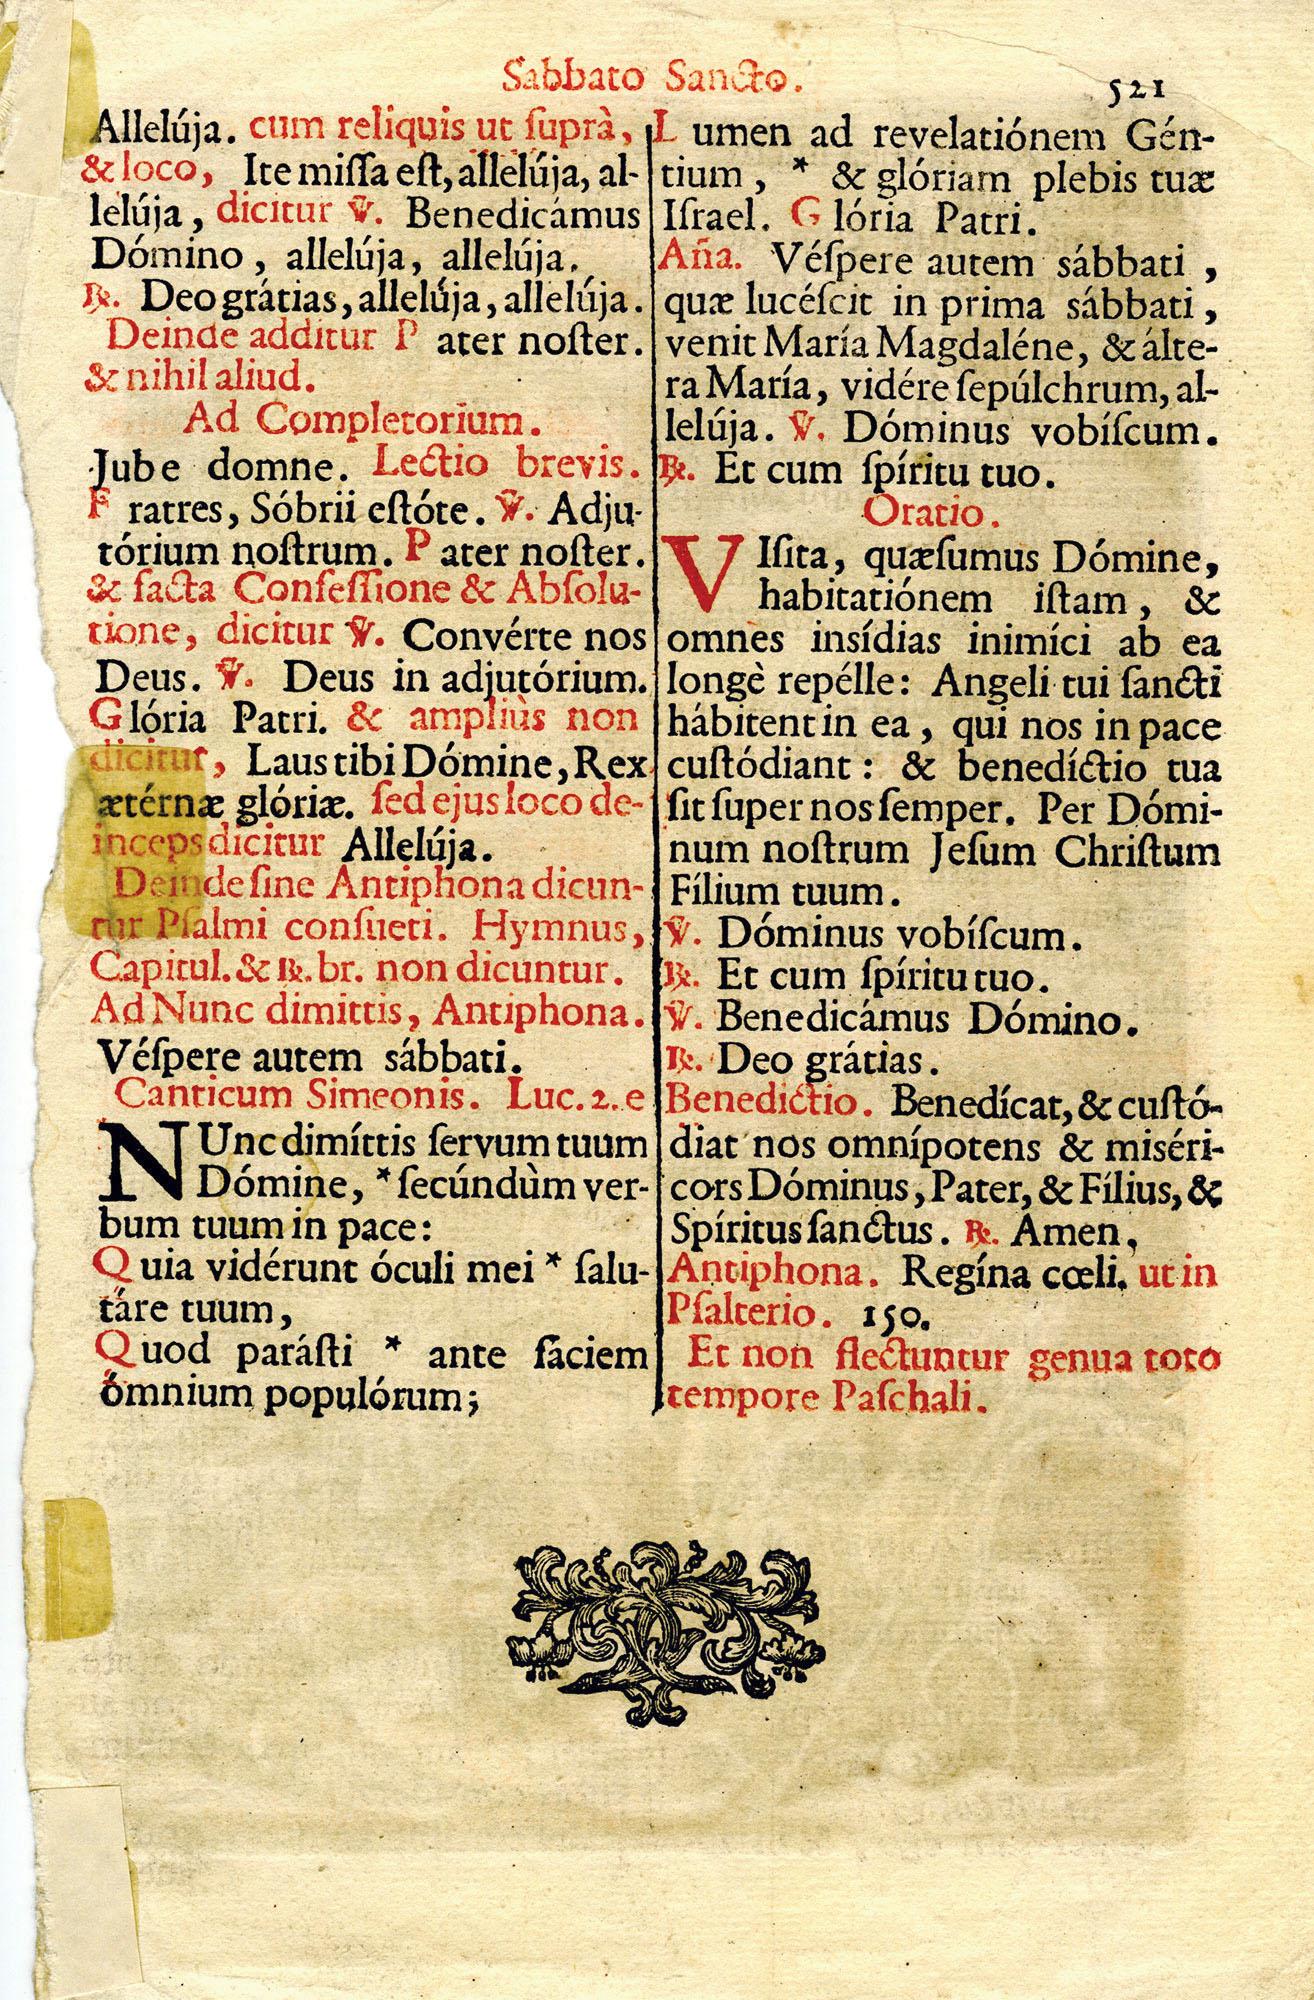 Sabbato Sancto.
521
Allelúja. cum reliquis ut ſuprà,
& loco, Ite miſſa eſt, allelúja, al-
lelúja, dicitur ℣. Benedicámus
Dómino, allelúja, allelúja.
℟. Deo grátias, allelúja, allelúja.
Deinde additur Pater noſter.
& nihil aliud.
Ad Completorium.
Jube domne. Lectio brevis.
Fratres, Sóbrii eſtóte. ℣. Adju-
tórium noſtrum. Pater noſter.
& facta Confeſſione & Abſolu-
tione, dicitur ℣. Convérte nos
Deus. ℣. Deus in adjutórium.
Glória Patri. & ampliùs non
dicitur, Laus tibi Dómine, Rex
ætérnæ glóriæ. ſed ejus loco de-
inceps dicitur Allelúja.
Deinde ſine Antiphona dicun-
tur Pſalmi conſueti. Hymnus,
Capitul. & ℟. br. non dicuntur.
Ad Nunc dimittis, Antiphona.
Véſpere autem sábbati.
Canticum Simeonis. Luc. 2. e
NUnc dimíttis ſervum tuum
Dómine, * ſecúndùm ver-
bum tuum in pace:
Quia vidérunt óculi mei * ſalu-
táre tuum,
Quod paráſti * ante fáciem
ómnium populórum;
Lumen ad revelatiónem Gén-
tium, * & glóriam plebis tuæ
Iſrael. Glória Patri.
Aña. Véſpere autem sábbati,
quæ lucéſcit in prima sábbati,
venit María Magdaléne, & álte-
ra María, vidére ſepúlchrum, al-
lelúja. ℣. Dóminus vobíſcum.
℟. Et cum ſpíritu tuo.
Oratio.
VIſita, quæſumus Dómine,
habitatiónem iſtam, &
omnes insídias inimíci ab ea
longè repélle: Angeli tui ſancti
hábitent in ea, qui nos in pace
cuſtódiant: & benedíctio tua
ſit ſuper nos ſemper. Per Dómi-
num noſtrum Jeſum Chriſtum
Fílium tuum.
℣. Dóminus vobíſcum.
℟. Et cum ſpíritu tuo.
℣. Benedicámus Dómino.
℟. Deo grátias.
Benedictio. Benedícat, & cuſtó-
diat nos omnípotens & miséri-
cors Dóminus, Pater, & Fílius, &
Spíritus ſanctus. ℟. Amen,
Antiphona. Regína cœli. ut in
Pſalterio. 150.
Et non flectuntur genua toto
tempore Paſchali.